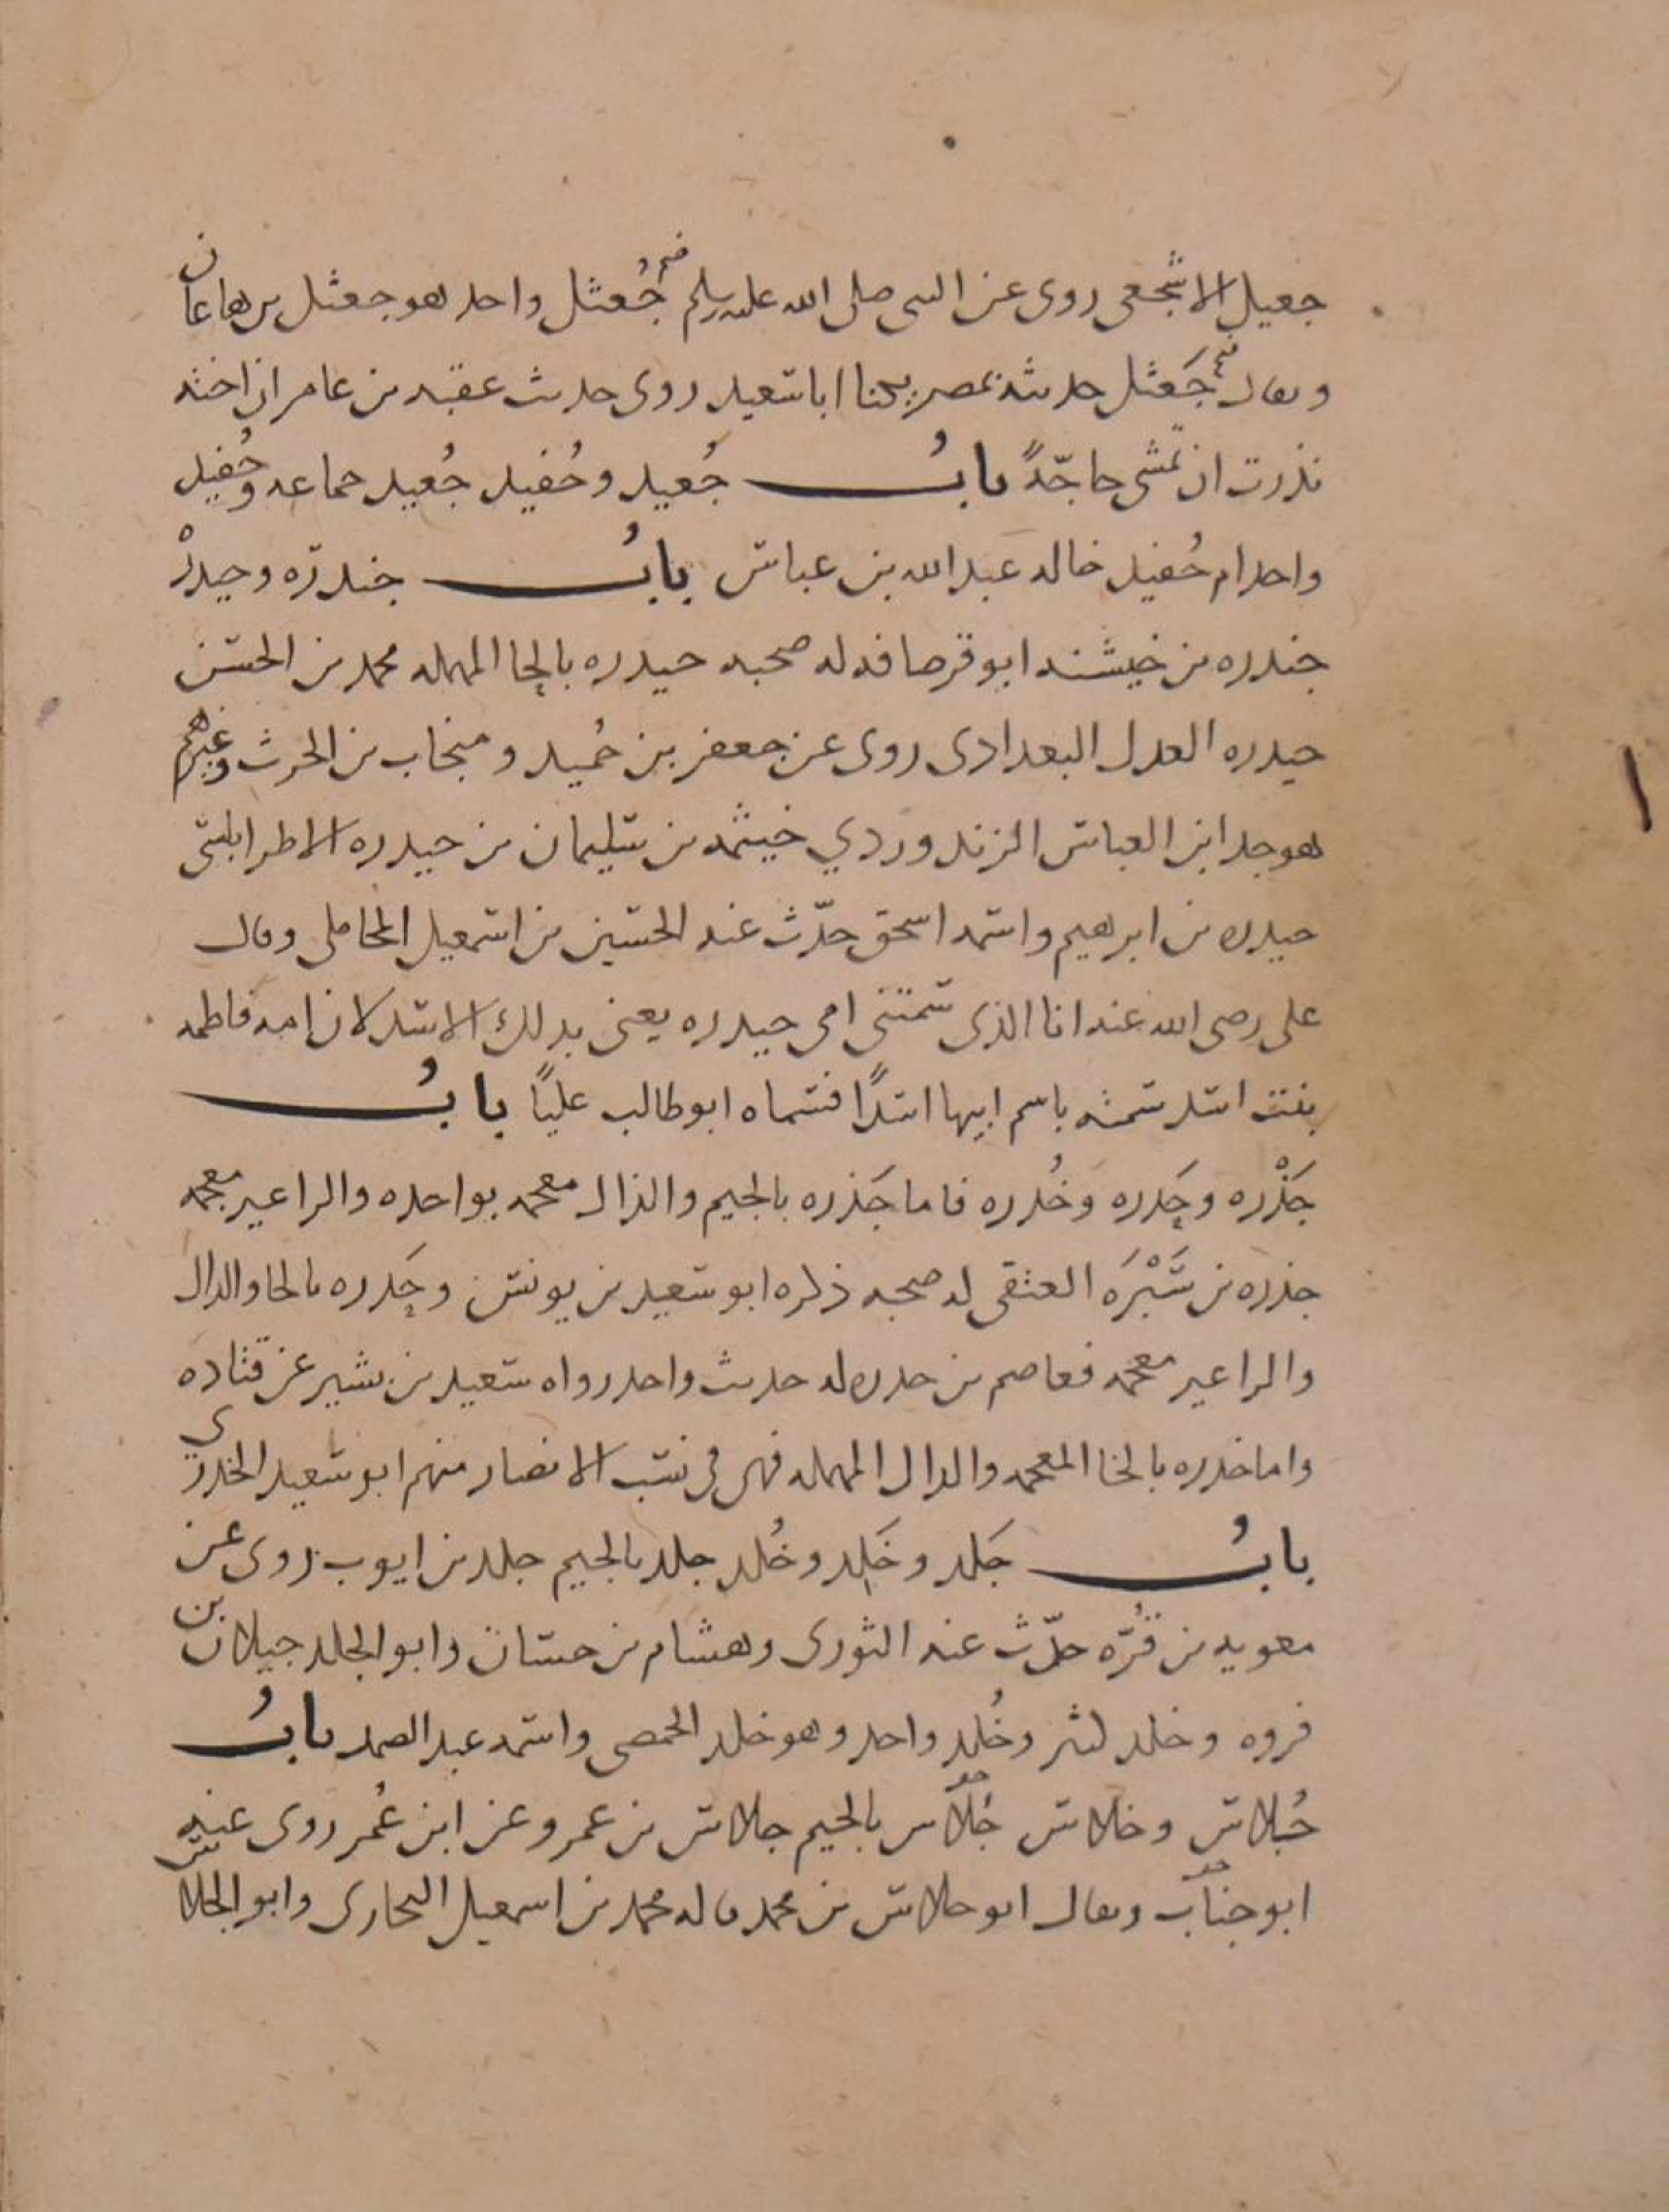 جعيل الاشجعي روى عن النبي صلى الله عليه وسلم جُعثل واحد هو جعثل بن هاعان
ويقال جَعثل حديثه بمصر يكنا ابا سعيد روى حديث عقبه بن عامر ان اخته
نذرت ان تمشي حاجّةً بابُ جُعيد وحُفيد جُعيد جماعه وحُفيد
واحد ام حُفيد خاله عبد الله بن عباس بابُ جندره وحيدره
جندره بن خيشنه ابو قرصافه له صحبه حيدره بالحا المهمله محمد بن الحسن
حيدره العدل البغدادي روى عن جعفر بن حُميد ومنجاب بن الحرث وغيرهم
هو جد ابن العباس الزندوردي خيثمه بن سليمان بن حيدره الاطرابلسي
حيدره بن ابرهيم واسمه اسحق حدّث عنه الحسين بن اسمعيل المحاملي وقال
علي رضي الله عنه انا الذي سمتني امي حيدره يعني بذلك الاسد لان امه فاطمه
بنت اسد سمته باسم ابيها اسدًا فسماه ابو طالب عليًا بابُ
جَذْره وحَدره وخُدره فاما جَذره بالجيم والذال معجمه بواحده والرا غير معجمه
جذره بن سَبْرَه العتقي له صحبه ذكره ابو سعيد بن يونس وحَدره بالحا والدال
والرا غير معجمه فعاصم بن حدره له حديث واحد رواه سعيد بن بشير عن قتاده
واما خدره بالخا المعجمه والدال المهمله فهي في نسب الانصار منهم ابو سعيد الخدري
بابُ جَلد وخَلد وخُلد جلد بالجيم جلد بن ايوب روى عن
معويه بن قُرّه حدّث عنه الثوري وهشام بن حسان وابو الجلد جيلان بن
فروه وخلد كثير وخُلد واحد وهو خلد الحمصي واسمه عبد الصمد بابُ
جُلاس وخلاس جُلاس بالجيم جلاس بن عمرو عن ابن عُمر روى عنه
ابو جناب ويقال ابو جلاس بن محمد قاله محمد بن اسمعيل البخاري وابو الجلاس